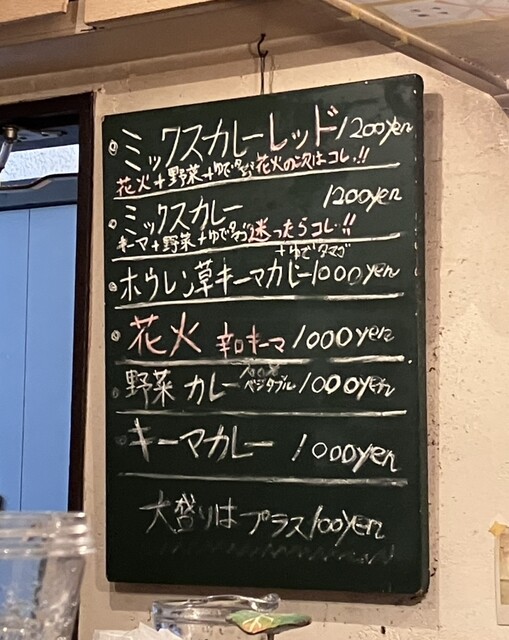 ミックスカレーレッド 1200yen
花火+野菜+ゆで 花火の次はコレ!!
ミックスカレー 1200yen
キーマ+野菜+ゆで 迷ったらコレ!!
+ゆでタマゴ
ホウレン草キーマカレー 1000yen
花火 辛口キーマ 1000yen
野菜カレー ベジタブル 1000yen
キーマカレー 1000yen
大盛りはプラス100yen